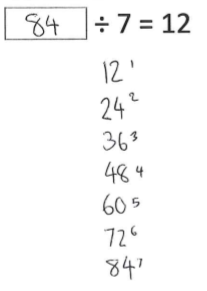 84 ÷ 7 = 12
12 ¹
24 ²
36 ³
48 ⁴
60 ⁵
72 ⁶
84 ⁷